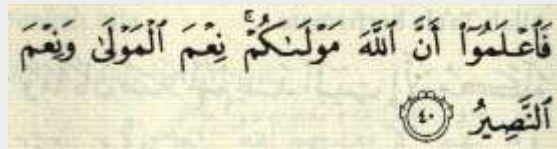 فَٱعْلَمُوٓا۟ أَنَّ ٱللَّهَ مَوْلَىٰكُمْ ۚ نِعْمَ ٱلْمَوْلَىٰ وَنِعْمَ
ٱلنَّصِيرُ ۝٤٠